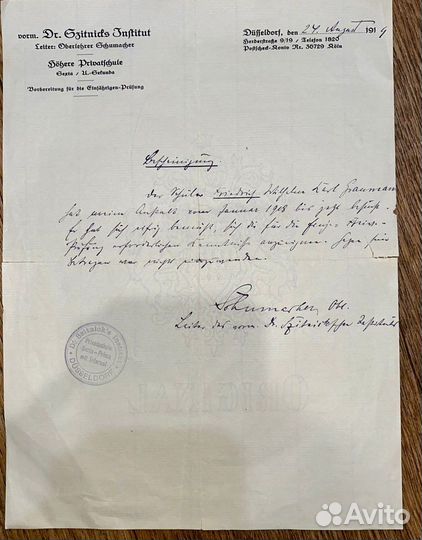 vorm. Dr. Szitnicks Institut
Leiter: Oberlehrer Schumacher
Höhere Privatschule
Sexta / U.-Sekunda
Vorbereitung für die Einjährigen-Prüfung
Düsseldorf, den 24. August 1919
Herderstraße 9/19 / Telefon 1820
Postscheck-Konto Nr. 36729 Köln
Bescheinigung.
Der Schüler Friedrich Wilhelm Karl Graumann
hat meine Anstalt vom Januar 1918 bis jetzt besucht.
Er hat sich eifrig bemüht, sich die für die Einj.-Freiw.-
Prüfung erforderlichen Kenntnisse anzueignen. Gegen sein
Betragen war nichts einzuwenden.
Schumacher, Obl.
Leiter des vorm. Dr. Szitnickschen Instituts
DÜSSELDORF
ORIGINAL
Avito